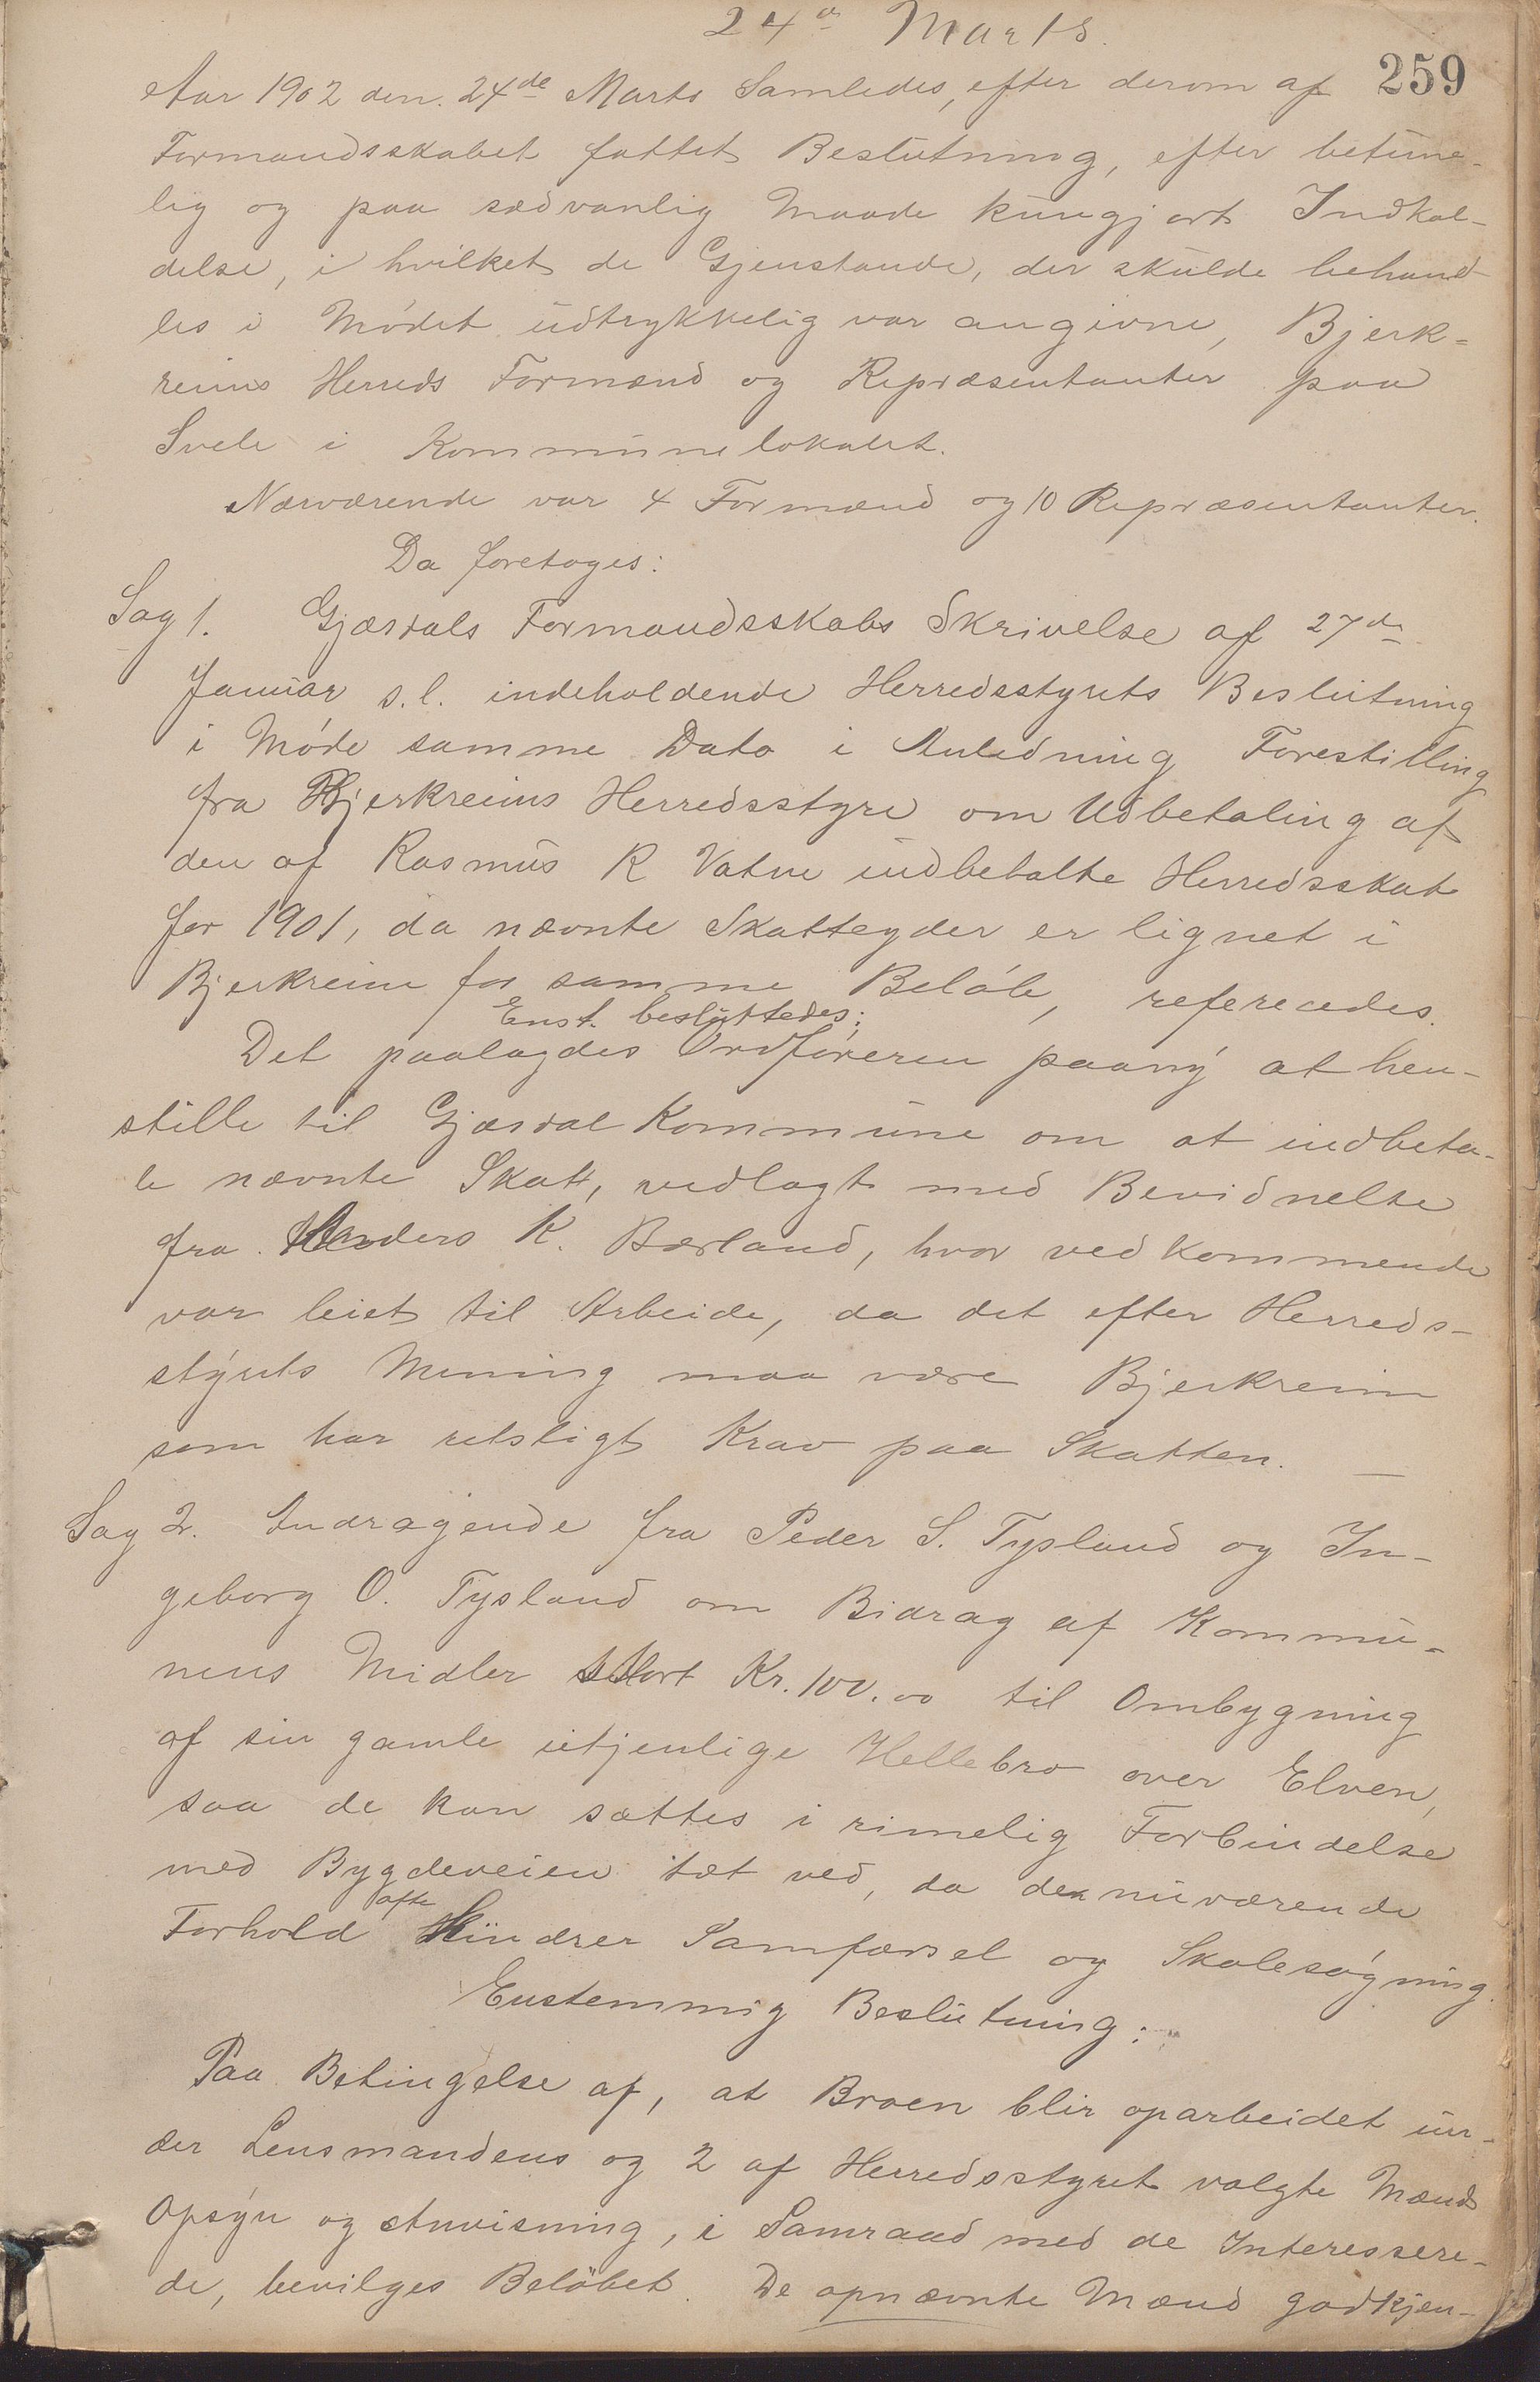 24de Marts.
259
Aar 1902 den 24de Marts Samledes, efter derom af
Formandsskabet fattet Beslutning, efter betime-
lig og paa sædvanlig Maade kungjort Indkal-
delse, i hvilket de Gjenstande, der skulde behand-
les i Mødet udtrykkelig var angivne, Bjerk-
reims Herreds Formænd og Repræsentanter paa
Svele i Kommunelokalet.
Nærværende var 4 Formænd og 10 Repræsentanter.
Da foretoges:
Sag 1. Gjæsdals Formandsskabs Skrivelse af 27de
Januar s.l. indeholdende Herredsstyrets Beslutning
i Møde samme Dato i Anledning Forestilling
fra Bjerkreims Herredsstyre om Udbetaling af
den af Rasmus R Vatne indbetalte Herredsskat
for 1901, da nævnte Skatteyder er lignet i
Bjerkreim for samme Beløb, refereredes.
Enst. besluttedes:
Det paalagdes Ordføreren paany at hen-
stille til Gjæsdal Kommune om at indbeta-
le nævnte Skatt, vedlagt med Bevidnelse
fra Anders K. Bærland, hvor vedkommende
var leiet til Arbeide, da det efter Herreds-
styrets Mening maa være Bjerkreim
som har retsligt Krav paa Skatten. —
Sag 2. Andragende fra Peder S. Tysland og In-
geborg O. Tysland om Bidrag af Kommu-
nens Midler stort Kr. 100.00 til Ombygning
af sin gamle utjenlige Hellebro over Elven,
saa de kan sættes i rimelig Forbindelse
med Bygdeveien tæt ved, da de nuværende
Forhold ofte hindrer Samfærsel og Skolesøgning.
Enstemmig Beslutning:
Paa Betingelse af, at Broen blir oparbeidet un-
der Lensmandens og 2 af Herredsstyret valgte Mænds
Opsyn og Anvisning, i Samraad med de Interessere-
de, bevilges Beløbet. De opnævnte Mænd godkjen-